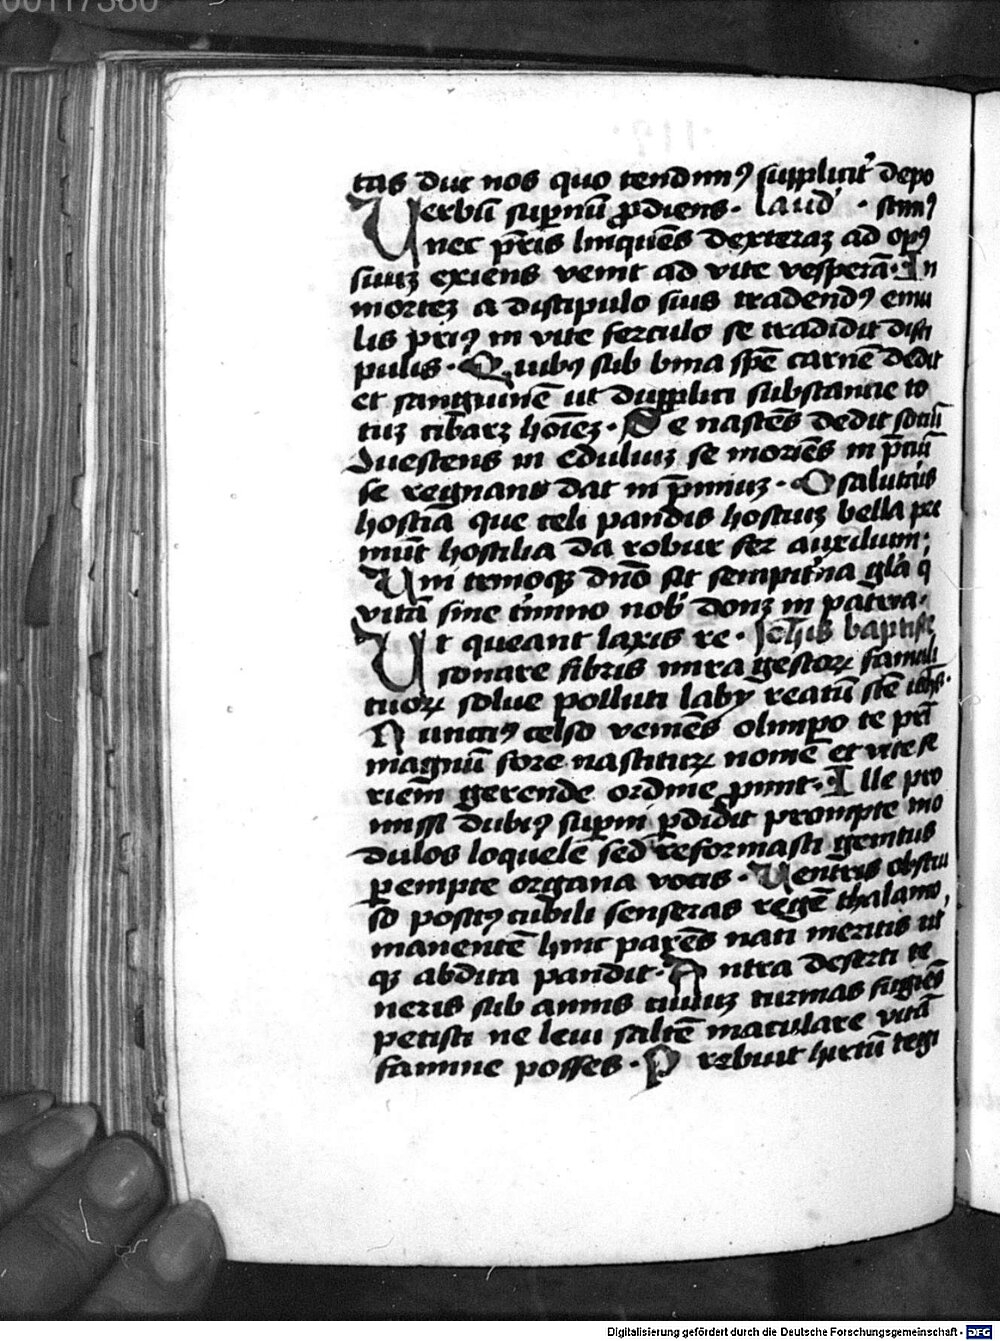 00117380
tas duc nos quo tendim9 suppliciter depo
Verbū supernū ꝓdiens. Laud' . scim9
nec pr̄is linquēs dexteraz ad op9
suuz exiens venit ad vite vesperā. In
mortez a discipulo suis tradend9 emu
lis pri9 in vite ferculo se tradidit disci
pulis. Quib9 sub bina spē carnē dedit
et sanguinē ut dupplici substancie to
tuz cibarz hoīez. Se nascēs dedit sociū
Juescens in eduliuz se moriēs in p̄ciū
se regnans dat in p̄miuz. O salutaris
hostiā que celi pandis hostiuz bella pre
mūt hostilia da robur fer auxilium;
Uni trinoqz dn̄o sit sempit'na gl̄a q
vitā sine t'mino nob' donz in patria.
Ut queant laxis re. Joh̄is baptiste
sonare fibris mira gestoꝝ famuli
tuoꝝ solue polluti laby reatū scē ioh̄s.
Nunci9 celso veniēs olimpo te pr̄i
magnū fore nascituꝝ nomē et vite se
riem̄ gerende ordine ꝓmit. Ille pro
missi dubi9 superni ꝑdidit prompte mo
dulos loquele sed reformasti genitus
ꝑempte organa vocis. Uentris obstru
so posit9 cubili senseras regē thalamo
manentē hinc parēs nati meritis ut
qz abdita pandit. Antra deserti te
neris sub annis ciuiuz turmas fugiēs
petisti ne leui saltē maculare vitā
famine posses. Prebuit hirtū tegi
Digitalisierung gefördert durch die Deutsche Forschungsgemeinschaft - DFG